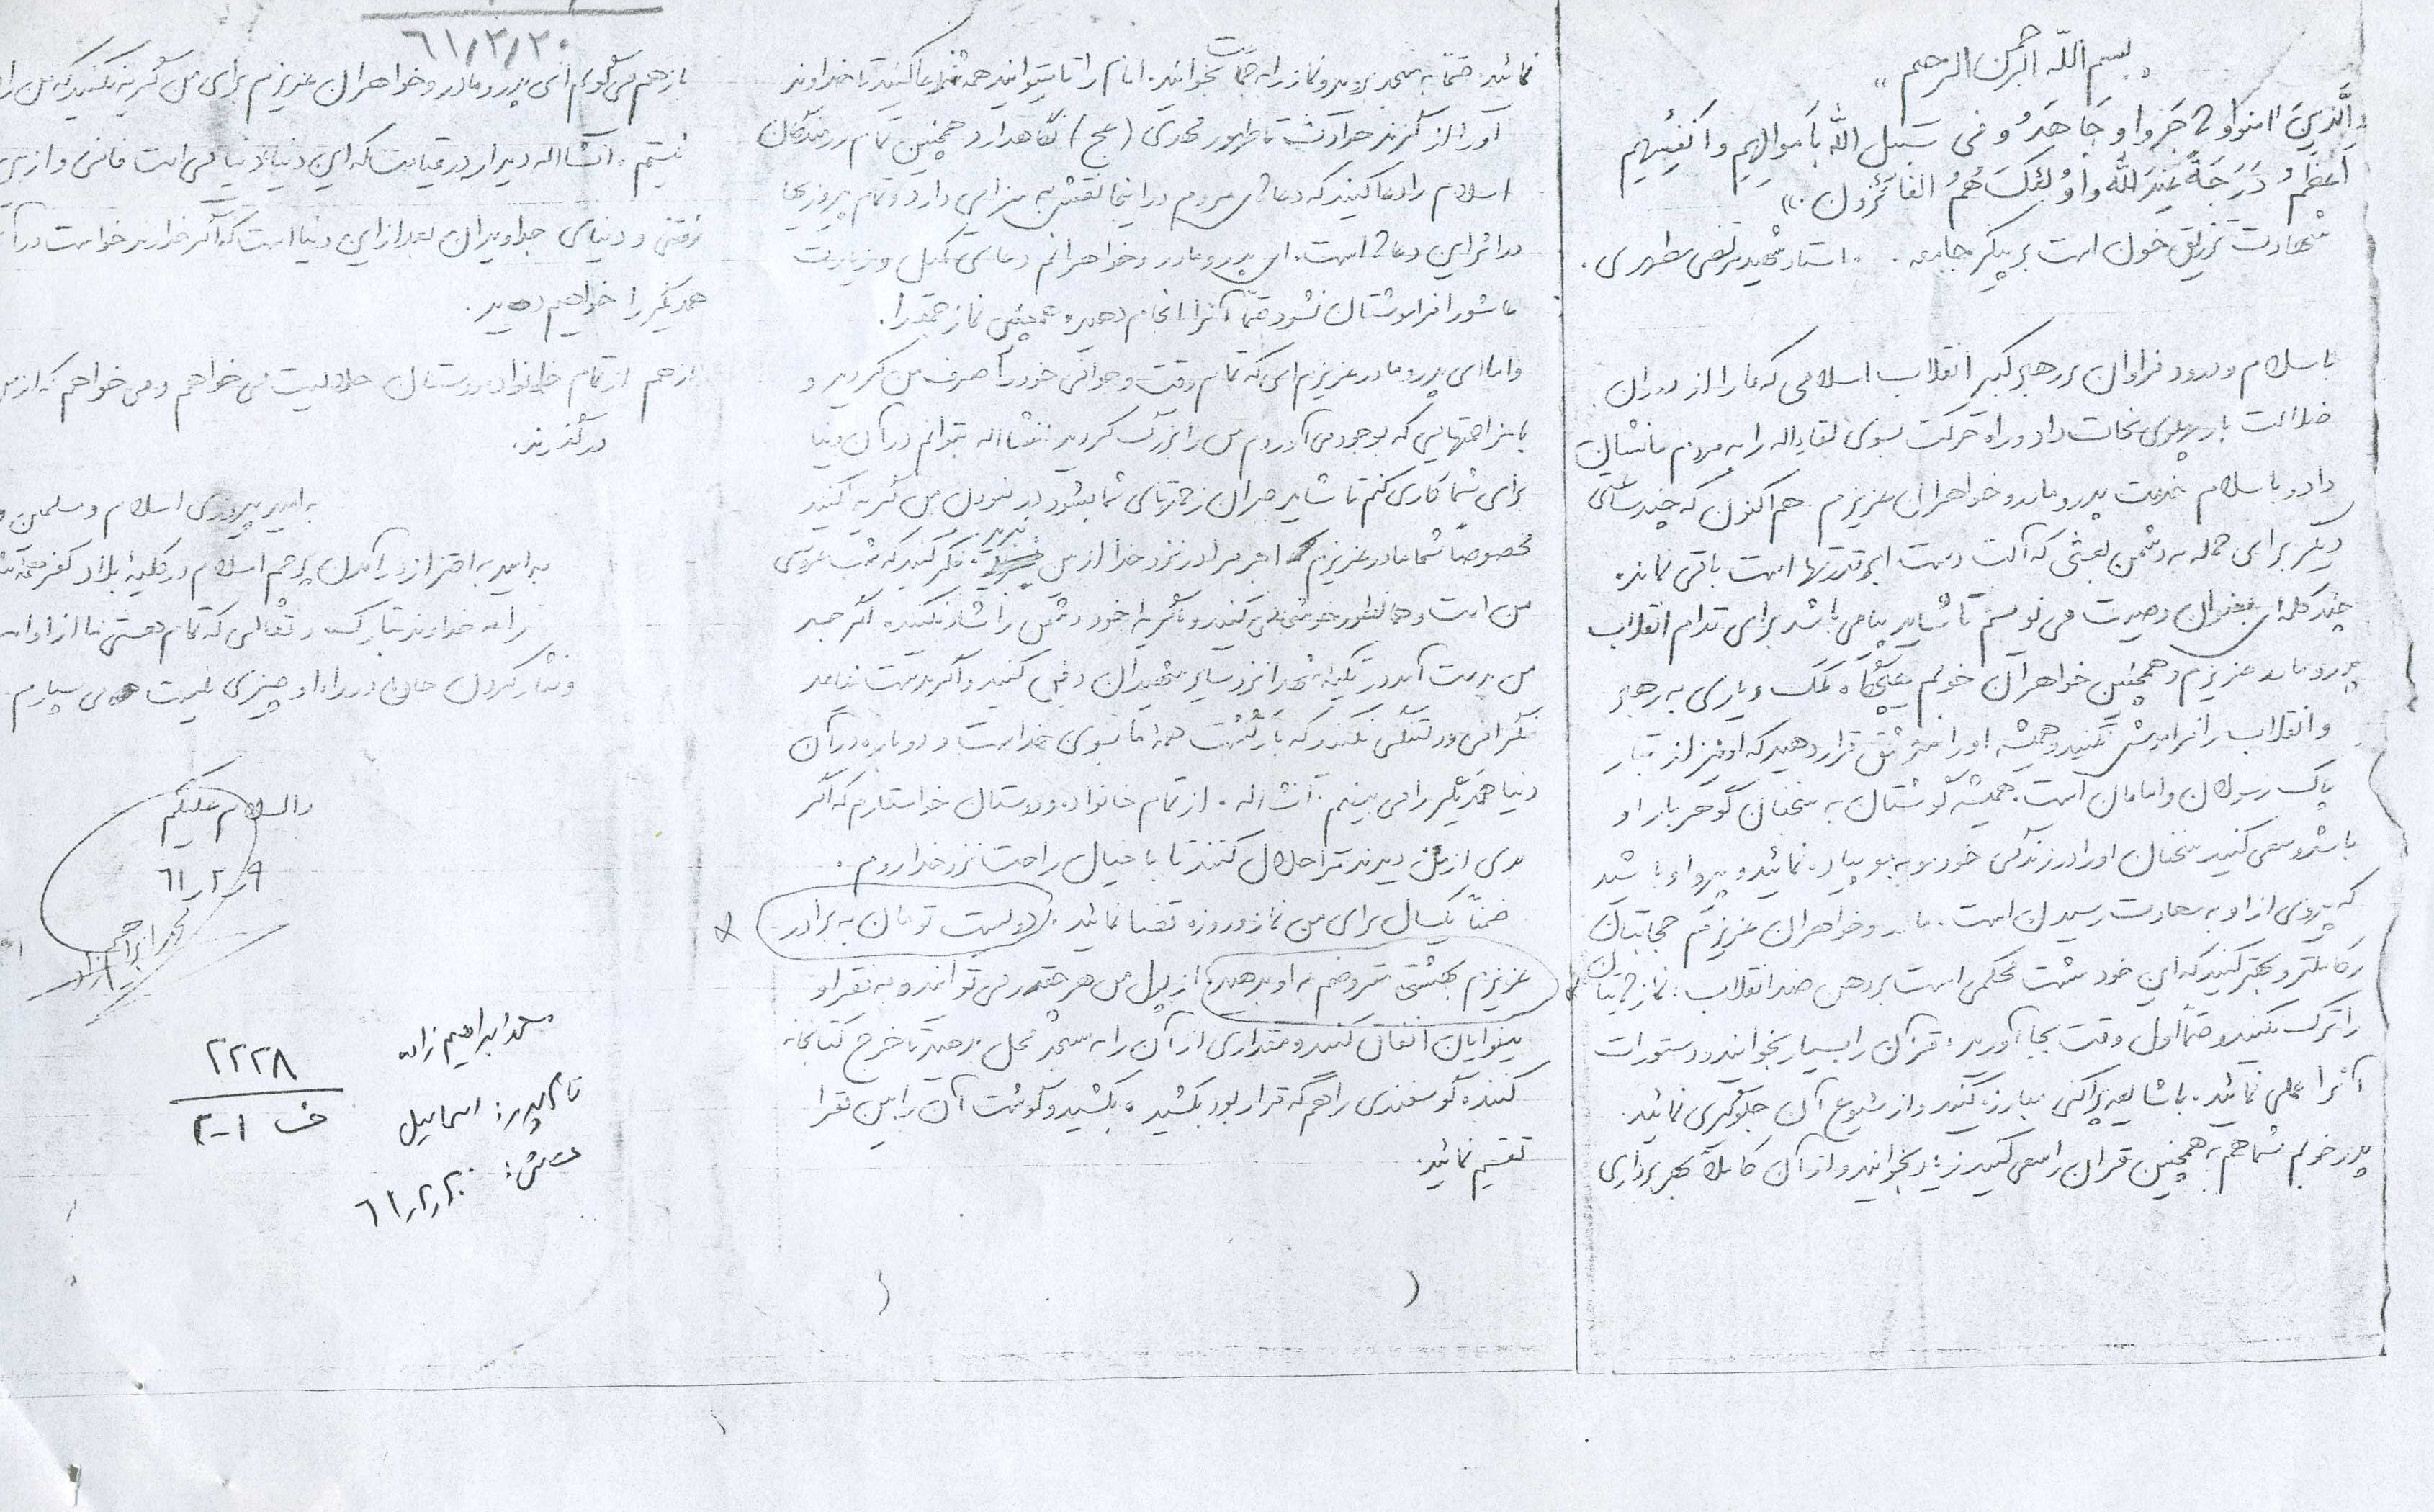 بسم الله الرحمن الرحیم
الَّذِینَ امنوا و هَجَروا و جَاهَدُو فی سَبیل الله بِاَموالِهِم و اَنفُسِهِم
اَعظَمُ دَرَجَةً عِندَ الله وَ اوُلئکَ هُمُ الفائزون.»
شهادت تزریق خون است بر پیکر جامعه. استاد شهید مرتضی مطهری.
با سلام و درود فراوان بر رهبر کبیر انقلاب اسلامی که ما را از دوران
ضلالت بار پهلوی نجات داد و راه حرکت بسوی لقاءاله را به مردم ما نشان
داد و با سلام خدمت پدر و مادر و خواهران عزیزم. هم اکنون که چند ساعتی
دیگر برای حمله به دشمن بعثی که آلت دست ابرقدرتها است باقی نمانده
چند کلمه ای بعنوان وصیت می نویسم تا شاید پیامی باشد برای تداوم انقلاب
پدر و مادر عزیزم و همچنین خواهران خوبم هیچگاه کمک و یاری به رهبر
و انقلاب را فراموش نکنید و همیشه او را سرمشق قرار دهید که او نیز از تبار
پاک رسولان و امامان است. همیشه گوشتان به سخنان گوهر بار او
باشد و سعی کنید سخنان او را در زندگی خود مو به مو پیاده نمائید و پیرو او باشید
که پیروی از او به سعادت رسیدن است. مادر و خواهران عزیزم حجابتان
را کاملتر و بهتر کنید که این خود مشت محکمی است بر دهن ضد انقلاب. نمازهایتان
را ترک نکنید و حتماً اول وقت بجا آورید. قرآن را بسیار بخوانید و دستورات
آنرا عملی نمائید. با شایعه پراکنی مبارزه کنید و از شیوع آن جلوگیری نمائید.
پدر خوبم شما هم همچنین قران را سعی کنید زیاد بخوانید و از آن کاملاً بهره برداری
نمائید. حتماً به مسجد بروید و نماز را به جماعت بخوانید. امام را تا میتوانید همیشه دعا کنید تا خداوند
او را از گزند حوادث تا ظهور مهدی (عج) نگاهدارد و همچنین تمام رزمندگان
اسلام را دعا کنید که دعای مردم در اینجا نقش به سزایی دارد و تمام پیروزیها
در اثر این دعا است. ای پدر و مادر و خواهرانم دعای کمیل و زیارت
عاشورا فراموشتان نشود حتماً آنرا انجام دهید و همچنین نماز جمعه را.
و اما ای پدر و مادر عزیزم ای که تمام وقت و جوانی خود را صرف من کردید و
با مزاحمتهایی که بوجود می آوردم من را بزرگ کردید انشااله بتوانم در آن دنیا
برای شما کاری کنم تا شاید جبران زحمتهای شما بشود در نبودن من گریه نکنید
مخصوصاً شما مادر عزیزم اجر مرا در نزد خدا از بین نبرید. فکر کنید که شب عروسی
من است و همانطور خوشحالی کنید و با گریه خود دشمن را شاد نکنید. اگر جسد
من بدست آمد در تکیه شهدا نزد سایر شهیدان دفن کنید و اگر بدست نیامد
نگرانی و دلتنگی نکنید که بازگشت همه ما بسوی خداست و دوباره در آن
دنیا همدیگر را می بینیم. انشااله. از تمام خانواده و دوستان خواستارم که اگر
بدی از من دیدند مرا حلال کنند تا با خیال راحت نزد خدا روم.
ضمناً یکسال برای من نماز و روزه قضا نمائید. دویست تومان به برادر
عزیزم بهشتی مقروضم به او بدهید. از پول من هر چقدر می توانید به فقرا و
بینوایان انفاق کنید و مقداری از آن را به مسجد محل بدهید تا خرج کتابخانه
کنند. گوسفندی را هم که قرار بود بکشید، بکشید و گوشت آن را بین فقرا
تقسیم نمائید.
٦١/٢/٢٠
باز هم می گویم ای پدر و مادر و خواهران عزیزم برای من گریه نکنید که من را
نیستم. انشااله دیدار در قیامت که این دنیا دنیائی است فانی و از بین
رفتنی و دنیای جاویدان بعد از این دنیا است که اگر خداوند خواست در آن
همدیگر را خواهیم دید.
باز هم از تمام خانواده و دوستان حلالیت می خواهم و می خواهم که از من
درگذرند.
به امید پیروزی اسلام و مسلمین و
به امید به اهتزاز در آمدن پرچم اسلام در کلیه بلاد کفر همه شما
را به خداوند تبارک و تعالی که تمام هستی ما از اوست
و نثار کردن جان در راه او چیزی نیست می سپارم.
والسلام علیکم
٦١/٢/٩
محمد ابراهیم زاده
محمد ابراهیم زاده
نام پدر: اسماعیل
٦١/٢/٢٠
٢٢٢٨
ف ٢-١